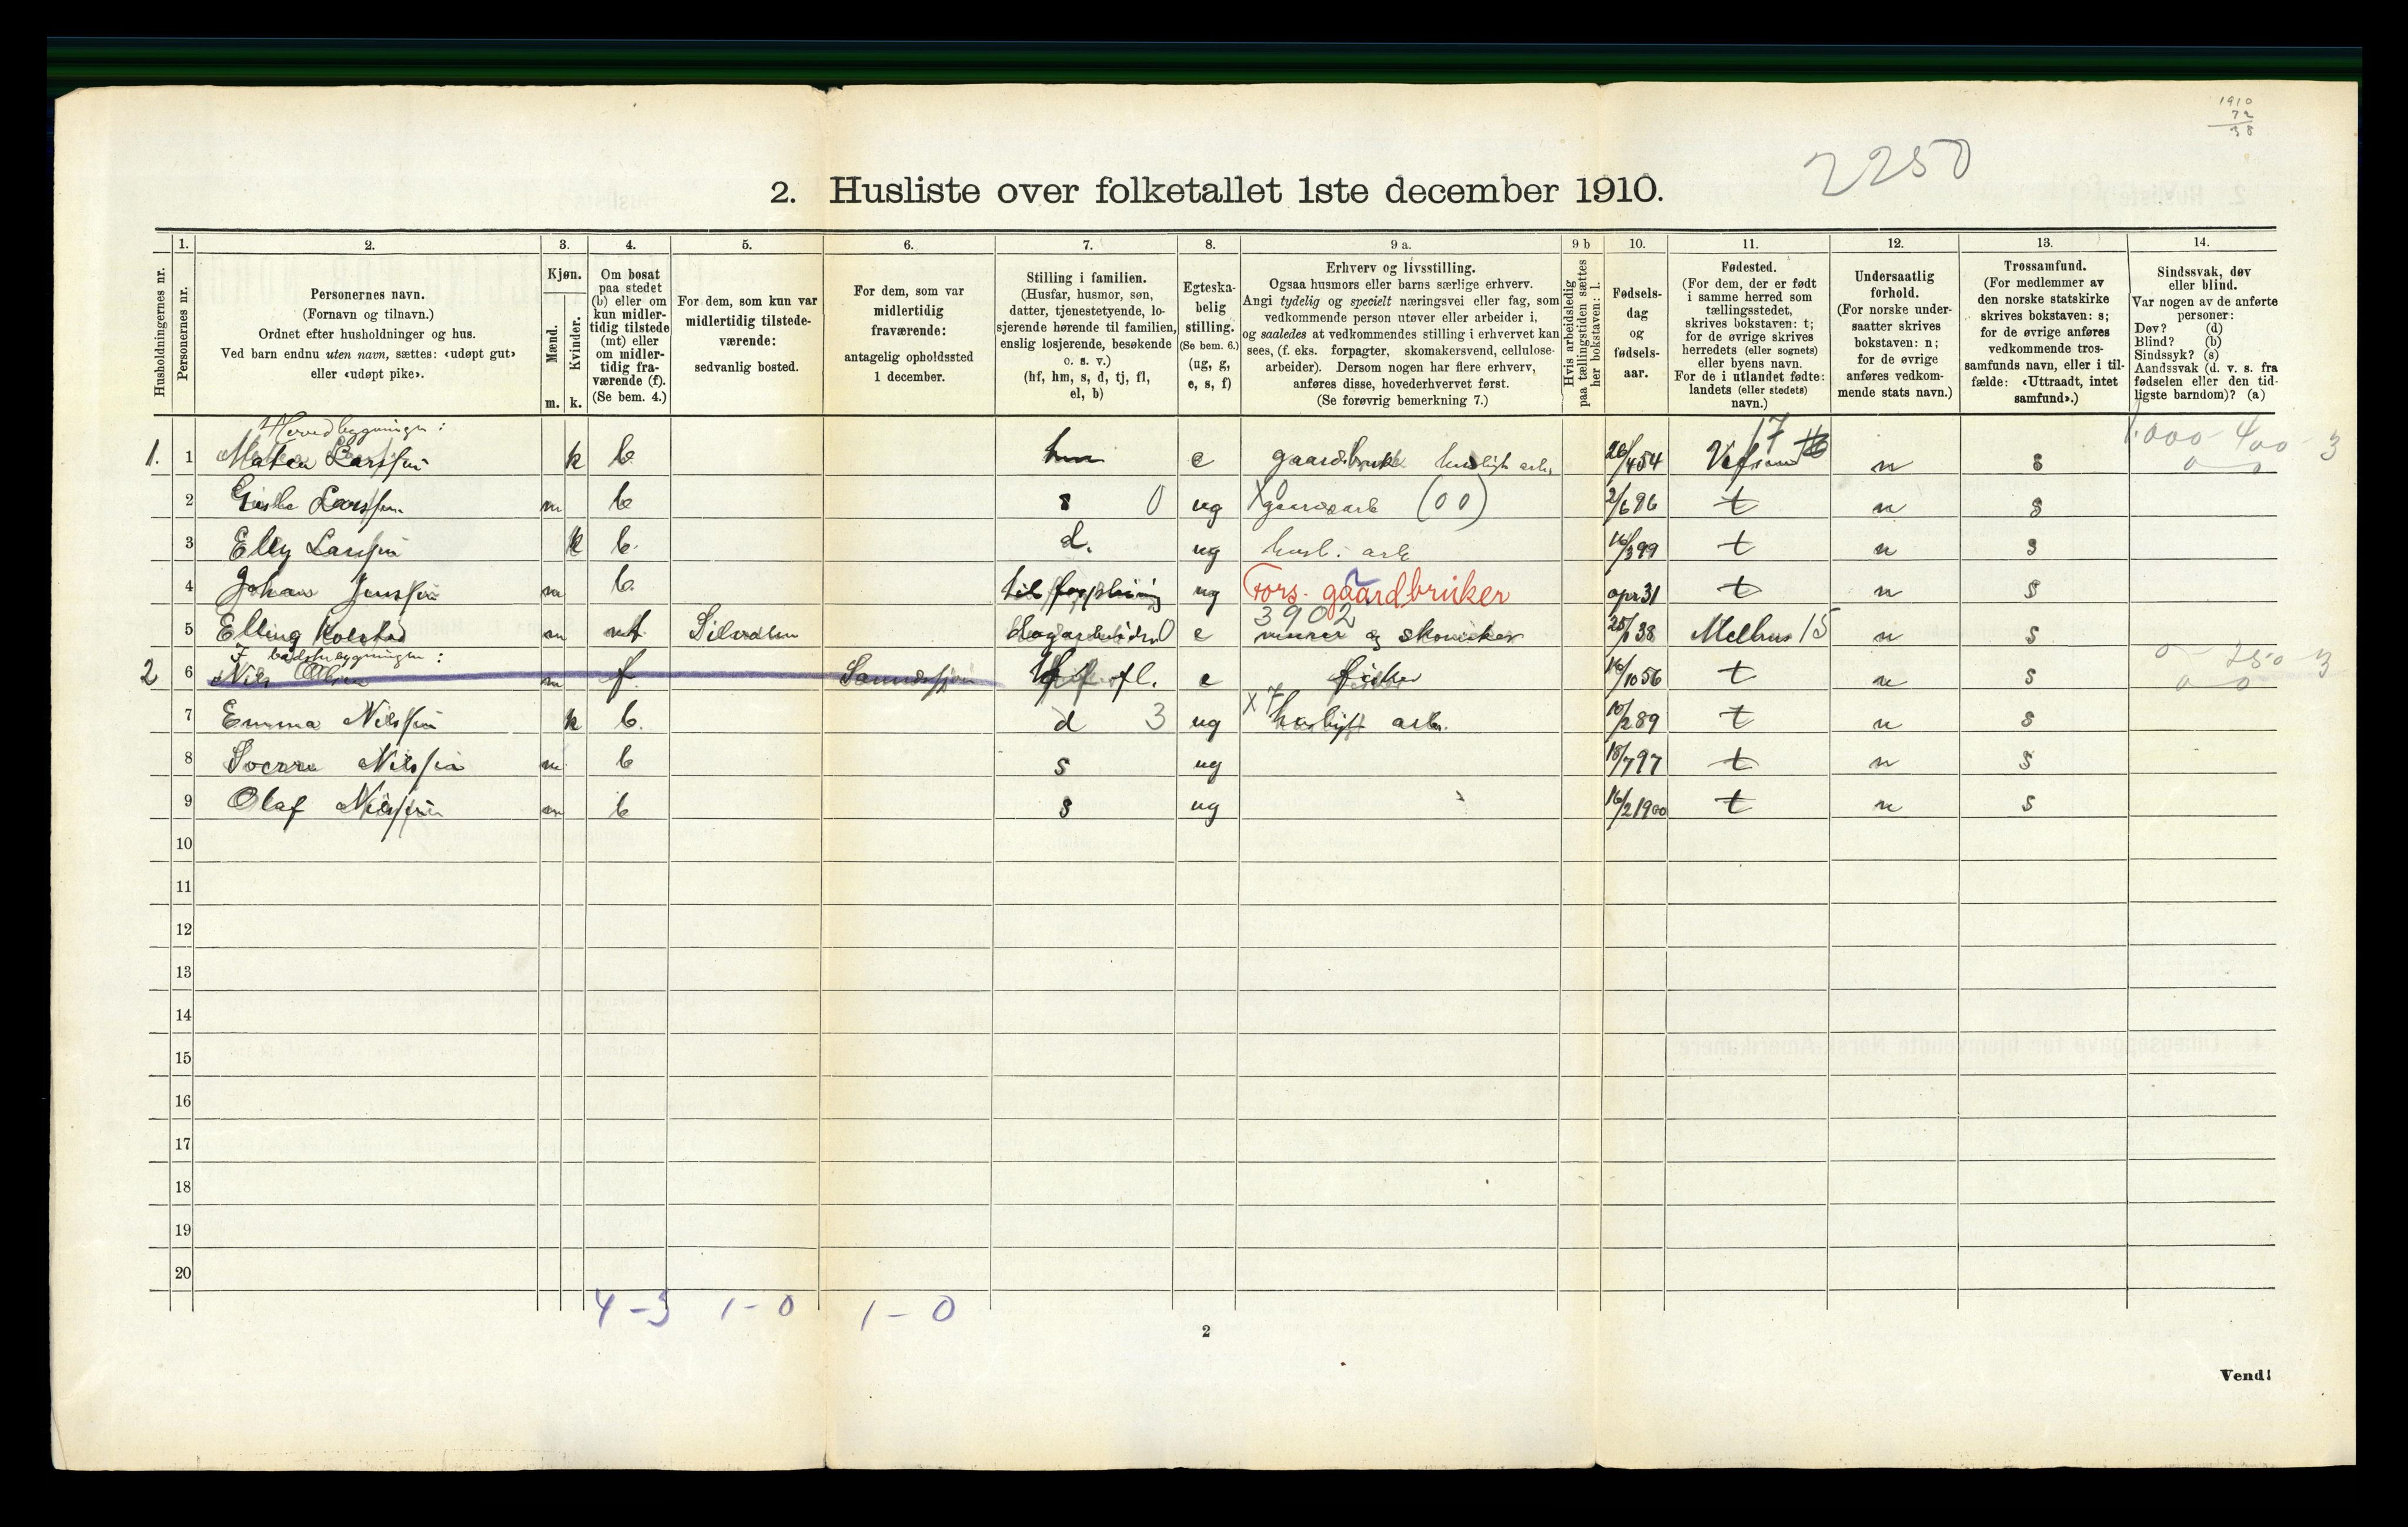 1910
72
38
2250
2. Husliste over folketallet 1ste december 1910.
Husholdningernes nr.
1.
Personernes nr.
2.
Personernes navn.
(Fornavn og tilnavn.)
Ordnet efter husholdninger og hus.
Ved barn endnu uten navn, sættes: «udøpt gut»
eller «udøpt pike».
3.
Kjøn.
Mænd.
Kvinder.
m. k.
4.
Om bosat
paa stedet
(b) eller om
kun midler-
tidig tilstede
(mt) eller
om midler-
tidig fra-
værende (f).
(Se bem. 4.)
5.
For dem, som kun var
midlertidig tilstede-
værende:
sedvanlig bosted.
6.
For dem, som var
midlertidig
fraværende:
antagelig opholdssted
1 december.
7.
Stilling i familien.
(Husfar, husmor, søn,
datter, tjenestetyende, lo-
sjerende hørende til familien,
enslig losjerende, besøkende
o. s. v.)
(hf, hm, s, d, tj, fl,
el, b)
8.
Egteska-
belig
stilling.
(Se bem. 6.)
(ug, g,
e, s, f)
9 a.
Erhverv og livsstilling.
Ogsaa husmors eller barns særlige erhverv.
Angi tydelig og specielt næringsvei eller fag, som
vedkommende person utøver eller arbeider i,
og saaledes at vedkommendes stilling i erhvervet kan
sees, (f. eks. forpagter, skomakersvend, cellulose-
arbeider). Dersom nogen har flere erhverv,
anføres disse, hovederhvervet først.
(Se forøvrig bemerkning 7.)
9 b
Hvis arbeidsledig
paa tællingstiden sættes
her bokstaven: l.
10.
Fødsels-
dag
og
fødsels-
aar.
11.
Fødested.
(For dem, der er født
i samme herred som
tællingsstedet,
skrives bokstaven: t;
for de øvrige skrives
herredets (eller sognets)
eller byens navn.
For de i utlandet fødte:
landets (eller stedets)
navn.)
12.
Undersaatlig
forhold.
(For norske under-
saatter skrives
bokstaven: n;
for de øvrige
anføres vedkom-
mende stats navn.)
13.
Trossamfund.
(For medlemmer av
den norske statskirke
skrives bokstaven: s;
for de øvrige anføres
vedkommende tros-
samfunds navn, eller i til-
fælde: «Uttraadt, intet
samfund».)
14.
Sindssvak, døv
eller blind.
Var nogen av de anførte
personer:
Døv? (d)
Blind? (b)
Sindssyk? (s)
Aandssvak (d. v. s. fra
fødselen eller den tid-
ligste barndom)? (a)
Hovedbygningen:
1. 1 Matea Larssen k b. hm e gaardbruk husligt arb. 26/4 54 17 n s 1.000 - 400 - 3
0 0
2 Larssen m b s 0 ug x gaardsarb (00) 2/6 96 t n s
3 Elly Larssen k b. d. ug husl. arb 16/3 99 t n s
4 Johan Jenssen m b. til forpleining ug Fors. gaardbruker apr 31 t n s
3902
5 Elling Kolstad m mt Silvalen 0 e murer og skomaker 25/1 38 Melhus 15 n s
2 6 Nils Olsen m f. fl. e fisker 16/10 56 t n s 0 - 250 - 3
0 0
7 Emma Nilssen k b. d 3 ug x 7 husligt arb. 10/2 89 t n s
8 Nilssen m b s ug 18/7 97 t n s
9 Olaf Nilssen m b s ug 16/2 1900 t n s
10
11
12
13
14
15
16
17
18
19
20
4 - 3 1 - 0 1 - 0
2
Vend!